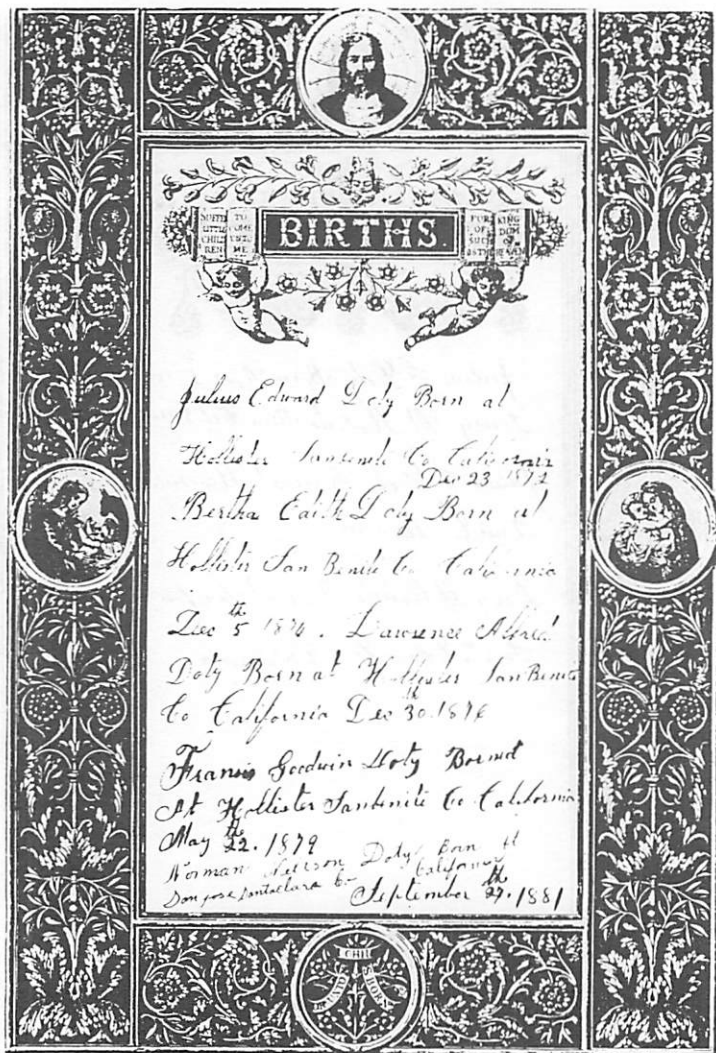 SUFFER TO
LITTLE COME
CHILD UNTO
REN ME
BIRTHS.
FOR KING
OF DOM
SUCH OF
IS THE HEAVEN
Julius Edward Doty Born at
Hollister Sanbenito Co California
Dec 23 1872
Bertha Edith Doty Born at
Hollister San Benito Co California
Dec 5th 1874. Lawrence Alfred
Doty Born at Hollister San Benito
Co California Dec 30th 1876
Francis Goodwin Doty Born at
At Hollister Sanbenito Co California
May 22th. 1879
Norman Doty Born at
San jose santaclara Co California
September 27th. 1881
CHIL